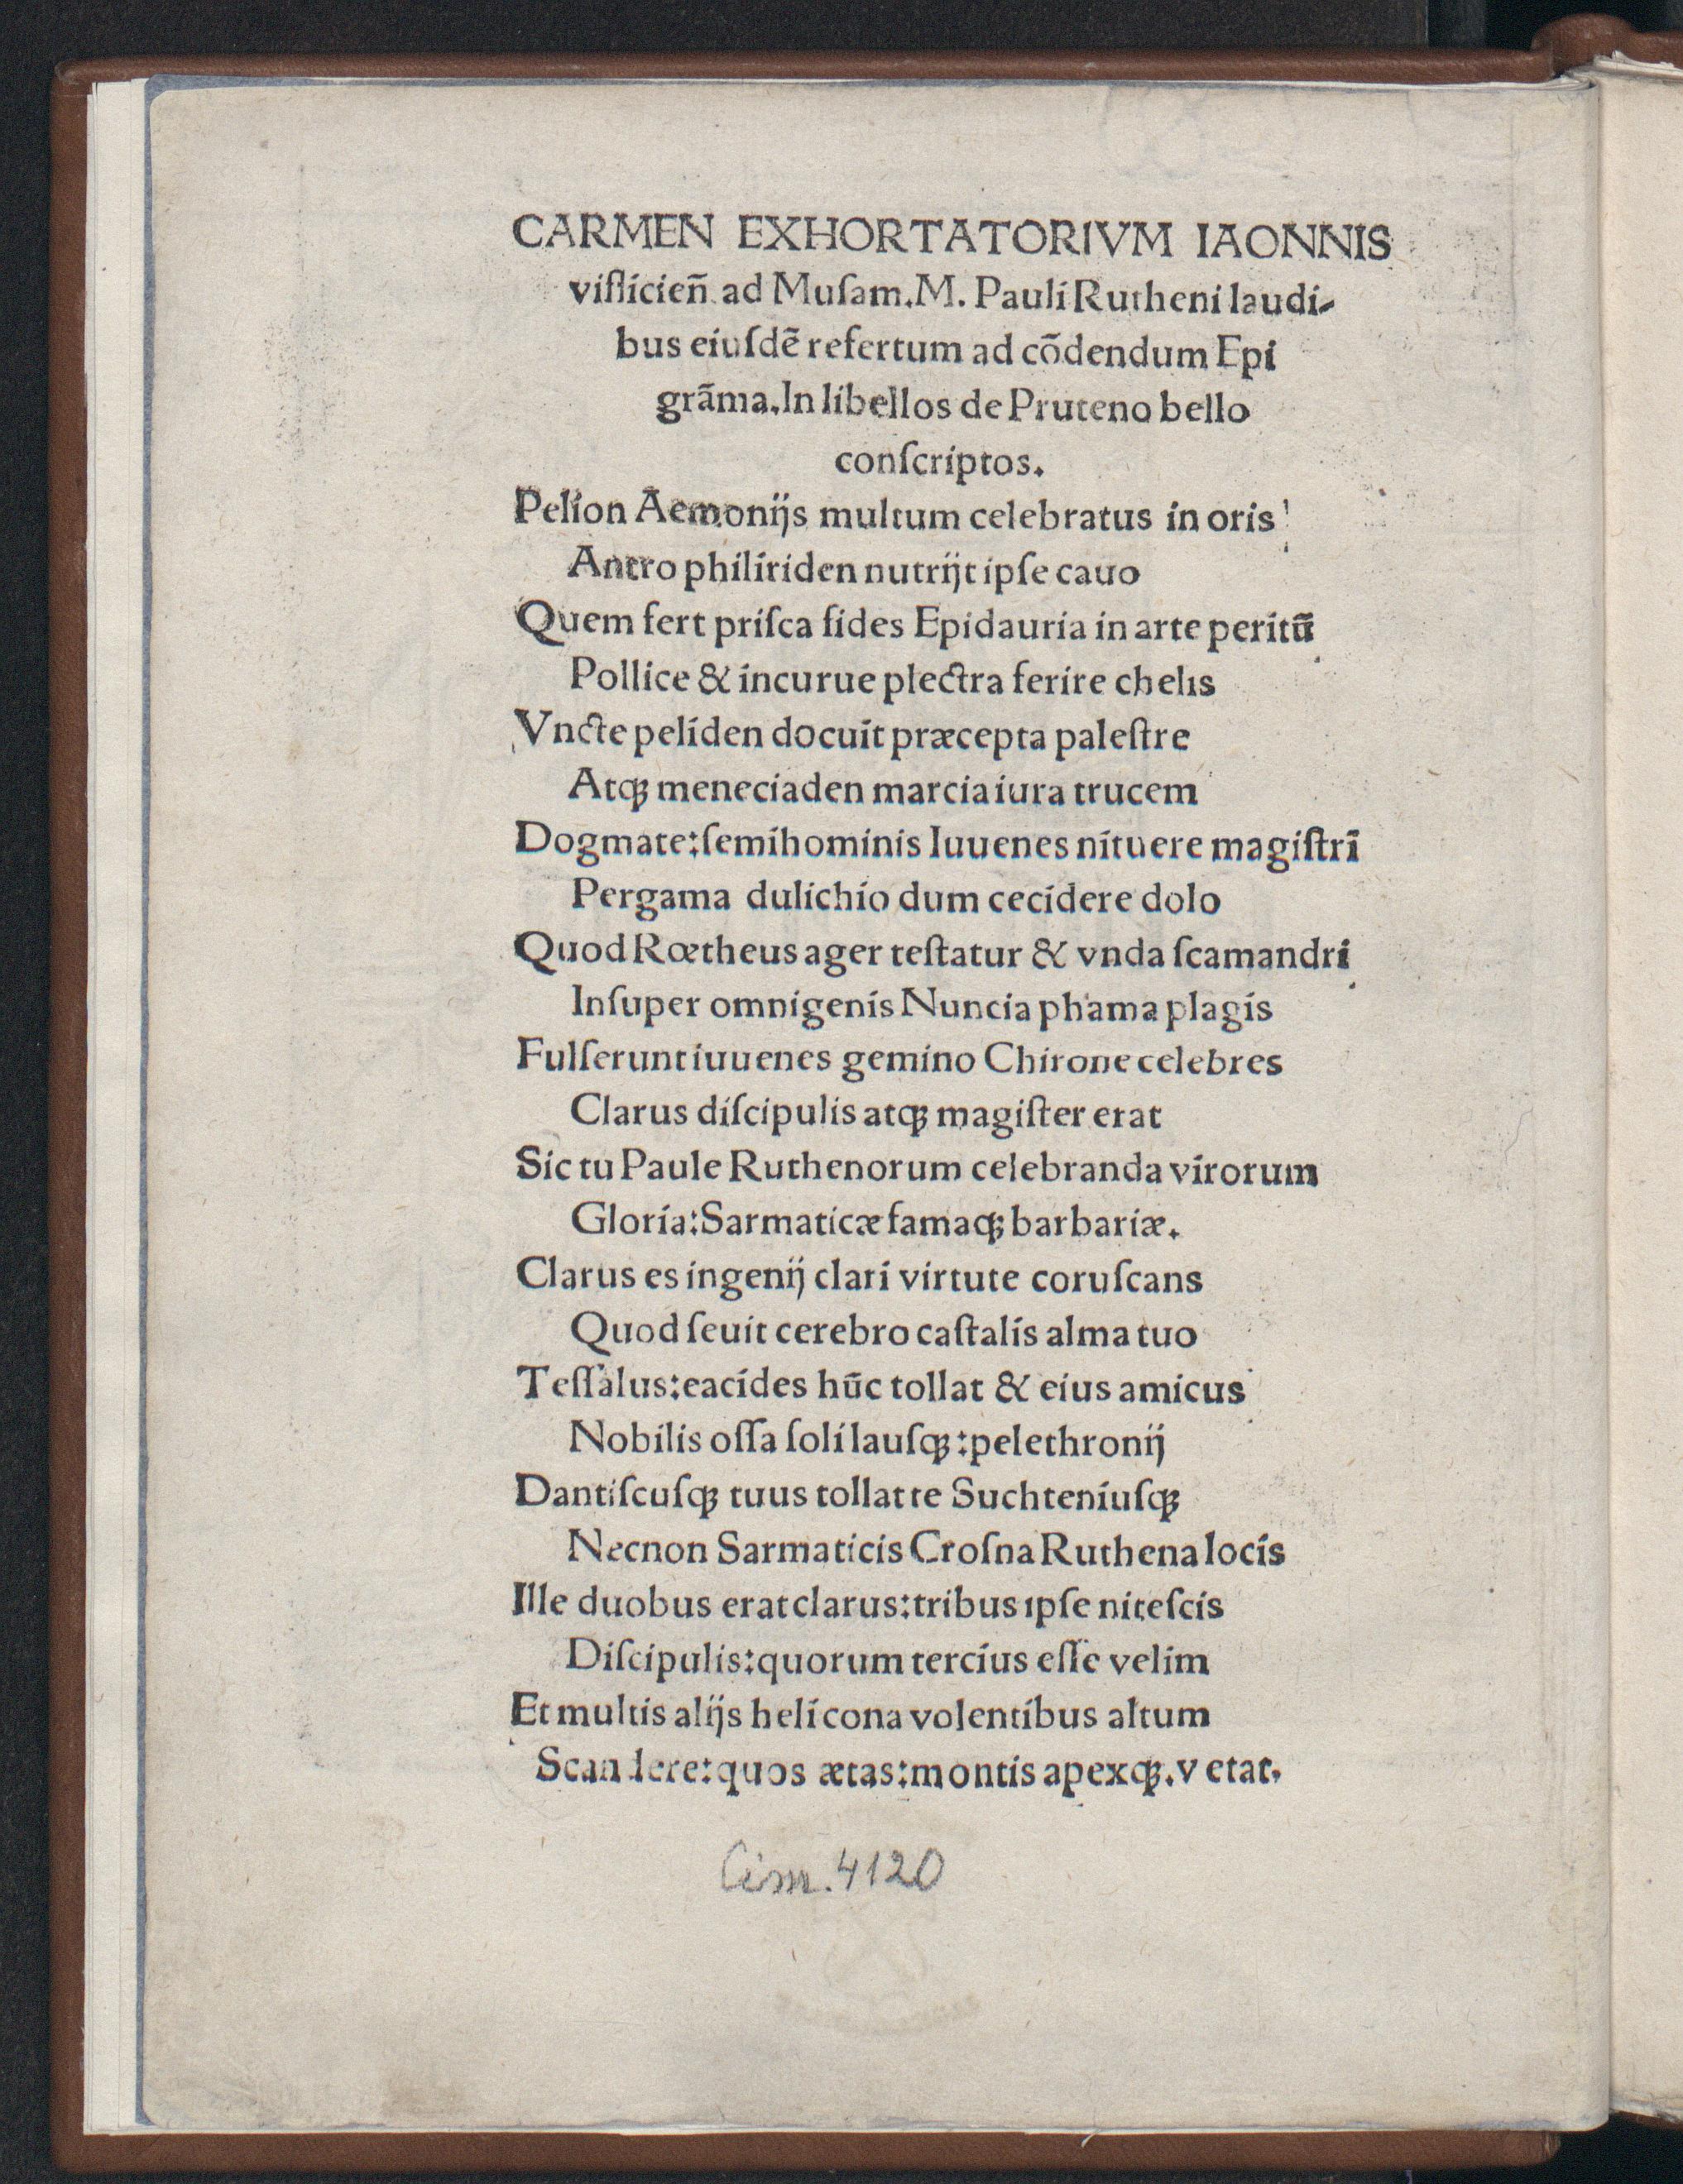 CARMEN EXHORTATORIVM IAONNIS
viſlicien̄ ad Muſam.M. Pauli Rutheni laudi-
bus eiuſdē refertum ad cōdendum Epi
grāma.In libellos de Pruteno bello
conſcriptos.
Pelion Aemonijs multum celebratus in oris
Antro philiriden nutrijt ipſe cauo
Quem fert priſca fides Epidauria in arte peritū
Pollice & incurue plectra ferire chelis
Vncte peliden docuit præcepta paleſtre
Atqꝫ meneciaden marcia iura trucem
Dogmate:ſemihominis Iuuenes nituere magiſtri
Pergama dulichio dum cecidere dolo
Quod Rœtheus ager teſtatur & vnda ſcamandri
Inſuper omnigenis Nuncia phama plagis
Fulſerunt iuuenes gemino Chirone celebres
Clarus diſcipulis atqꝫ magiſter erat
Sic tu Paule Ruthenorum celebranda virorum
Gloria:Sarmaticæ famaqꝫ barbariæ.
Clarus es ingenij clari virtute coruſcans
Quod ſeuit cerebro caſtalis alma tuo
Teſſalus:eacides hūc tollat & eius amicus
Nobilis oſſa ſoli lauſqꝫ:pelethronij
Dantiſcuſqꝫ tuus tollat te Suchteniuſqꝫ
Necnon Sarmaticis Croſna Ruthena locis
Ille duobus erat clarus:tribus ipſe niteſcis
Diſcipulis:quorum tercius eſſe velim
Et multis alijs helicona volentibus altum
Scandere:quos ætas:montis apexqꝫ.vetat.
Cim. 4120